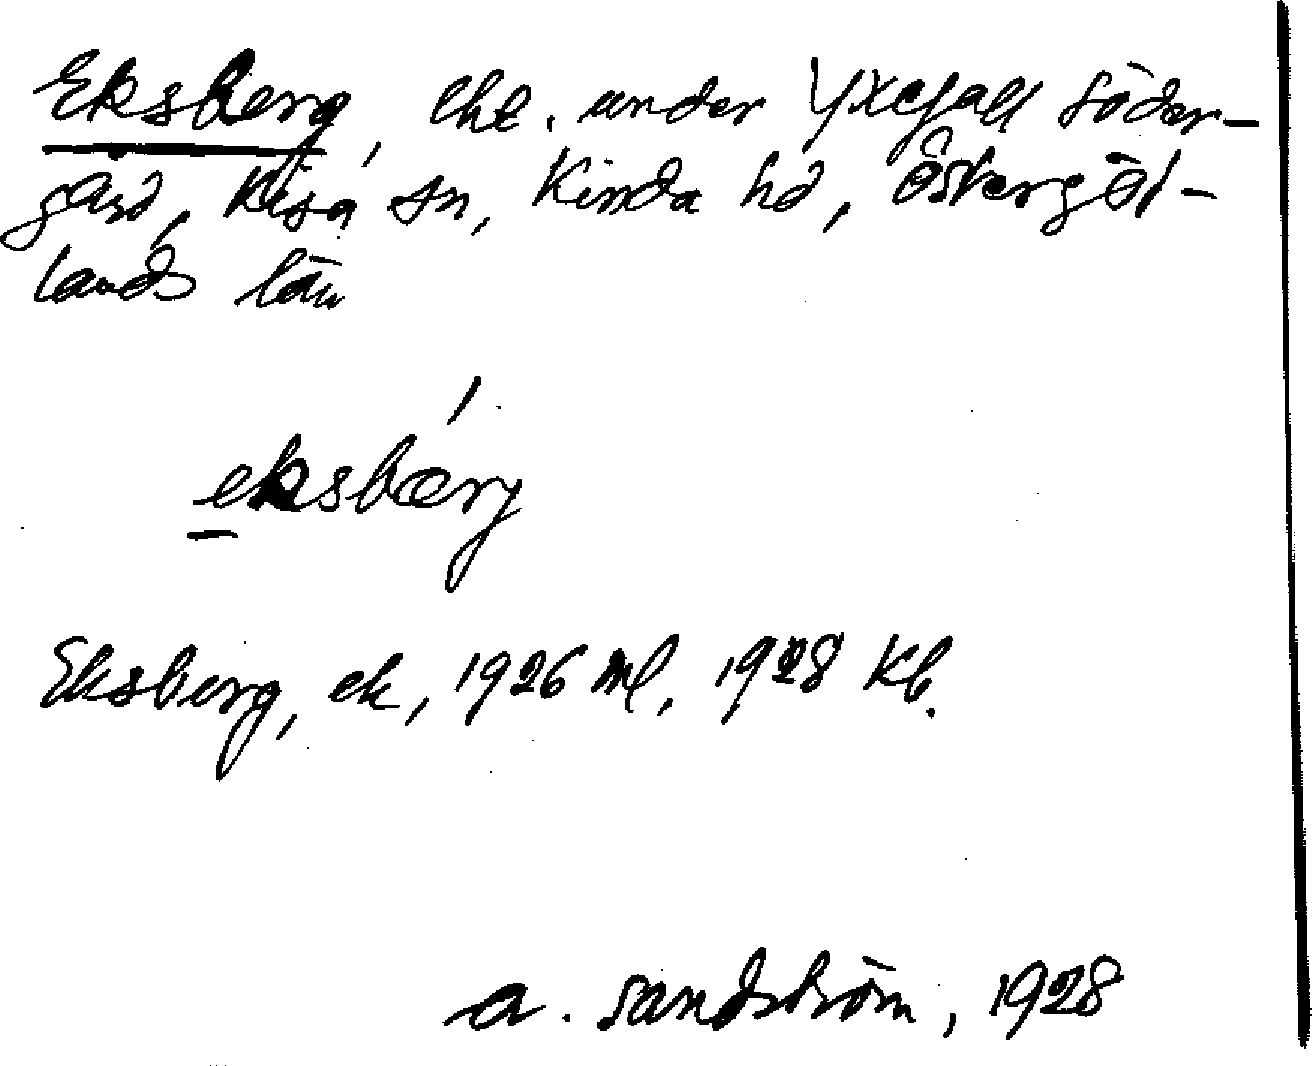 Eksberg, lht. under Yxefall Söder-
gård, Kisa sn, Kinda hd, Östergöt-
lands län
eksbærj
Eksberg, ek, 1926 ml, 1928 Kb.
A. Sandström, 1928